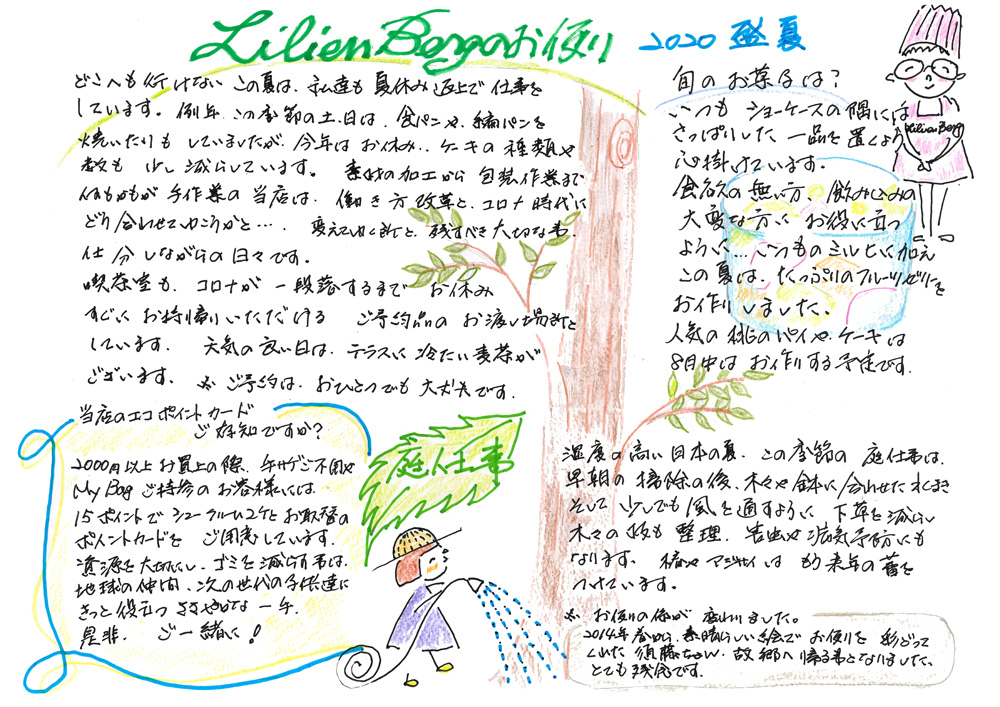 Lilien Bergのお便り
2020 盛夏
どこへも行けない この夏は、私達も 夏休み返上で 仕事を
しています。 例年、この季節の土、日は、食パンや、編パンを
焼いたりも していましたが、今年は お休み、ケーキの 種類や
数も 少し 減らしています。 素材の加工から 包装作業まで
何もかもが 手作業の 当店は、働き方改革と、コロナ時代に
どう合わせてゆこうかと…. 変えてゆく所と、残すべき 大切な事、
仕分しながらの 日々です。
喫茶室も、コロナが 一段落するまで お休み
すぐに お持帰りいただける ご予約品の お渡し場所と
しています。 天気の良い日は、テラスに 冷たい麦茶が
ございます。 ※ ご予約は、おひとつでも 大丈夫です。
旬のお菓子は?
いつも ショーケースの隅には
さっぱりした 一品を 置くよう
心掛けています。
食欲の無い方、飲み込みの
大変な方に お役に立つ
ように… いつものミルヒに加え
この夏は、たっぷりのフルーツゼリーを
お作りしました。
人気の 桃のパイや、ケーキは
8月中は お作りする予定です.
Lilien Berg
当店のエコ ポイントカード
ご存知ですか?
2000円以上 お買上の際、手サゲご不用や
My Bag ご持参の お客様には
15ポイントで シュークリーム2ケと お取替の
ポイントカードを ご用意しています.
資源を大切にし、ゴミを 減らす事は、
地球の仲間、次の世代の子供達に
きっと役立つ ささやかな 一手.
是非、 ご一緒に!
庭仕事
湿度の高い 日本の夏、この季節の 庭仕事は、
早朝の 掃除の後、木々や 鉢に 合わせた水まき
そして 少しでも 風を 通すように、下草を減らし
木々の 枝も 整理、害虫や 病気予防にも
なります。 椿や アジサイは もう来年の 蕾を
つけています。
※ お便りの係が 変わりました。
2014年 春から、素晴らしい絵で お便りを 彩どって
くれた 須藤ちゃん、故郷へ 帰る事となりました、
とても 残念です.